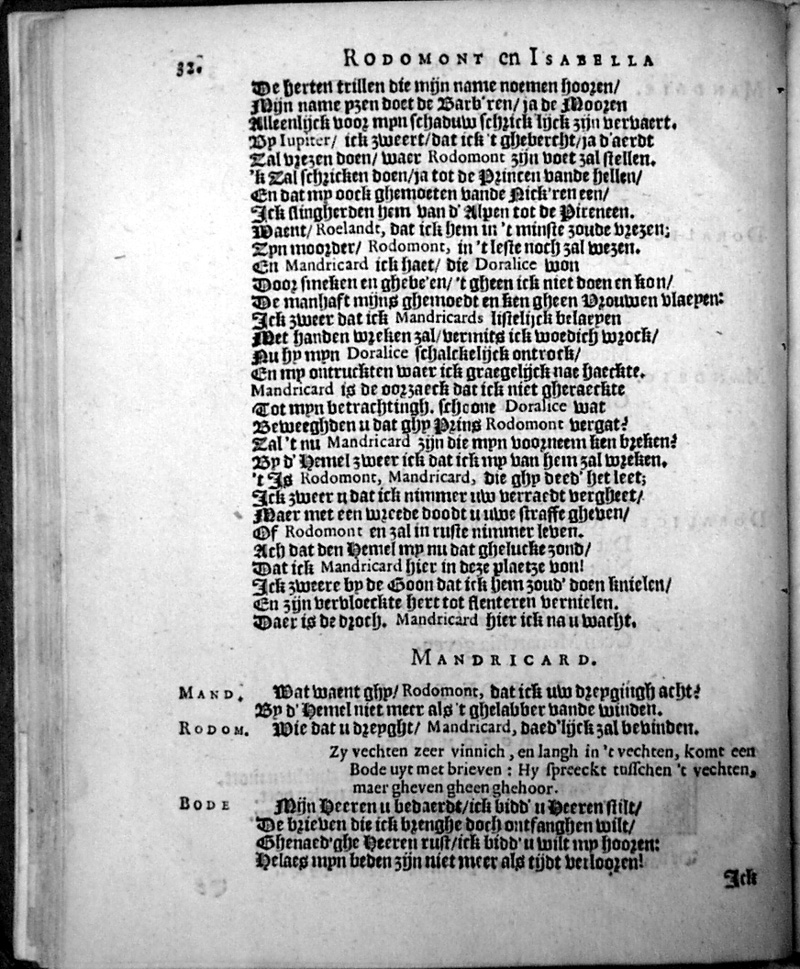 32.
RODOMONT en ISABELLA
De herten trillen die mijn name noemen hooren/
Mijn name pzen doet de Barb'ren/ ja de Mooren
Alleenlijck voor mijn schaduw schrick'lijck zijn vervaert.
By Iupiter/ ick zweert/ dat ick 't ghebercht/ ja d'aerdt
Zal vrezen doen/ waer Rodomont zijn voet zal stellen.
'k Zal schricken doen/ ja tot de Princen vande hellen/
En dat my oock ghemoeten vande Nick'ren een/
Ick slingherden hem van d' Alpen tot de Pireneen.
Waent/ Roelandt, dat ick hem in 't minste zoude vrezen;
Zyn moorder/ Rodomont, in 't leste noch zal wezen.
En Mandricard ick haet/ die Doralice won
Door smeken en ghebe'en/ 't gheen ick niet doen en kon/
De manhaft mijns ghemoedt en ken gheen Vrouwen vlaeyen:
Ick zweer dat ick Mandricards listelijck belaeyen
Met handen wreken zal/ vermits ick woedich wrock/
Nu hy myn Doralice schalckelijck ontrock/
En my ontruckten waer ick graegelijck nae haeckte.
Mandricard is de oorzaeck dat ick niet gheraeckte
Tot myn betrachtingh. schoone Doralice wat
Beweeghden u dat ghy Prins Rodomont vergat?
Zal 't nu Mandricard zijn die myn voorneem ken breken?
By d' Hemel zweer ick dat ick my van hem zal wreken.
't Is Rodomont, Mandricard, die ghy deed' het leet;
Ick zweer u dat ick nimmer uw verraedt vergheet/
Maer met een wreede doodt u uwe straffe gheven/
Of Rodomont en zal in ruste nimmer leven.
Ach dat den Hemel my nu dat ghelucke zond/
Dat ick Mandricard hier in deze plaetze von!
Ick zweere by de Goon dat ick hem zoud' doen knielen/
En zijn vervloeckte hert tot flenteren vernielen.
Daer is de droch. Mandricard hier ick na u wacht.
MANDRICARD.
MAND. Wat waent ghy/ Rodomont, dat ick uw dreygingh acht?
By d' Hemel niet meer als 't ghelabber vande winden.
RODOM. Wie dat u dreyght/ Mandricard, daed'lijck zal bevinden.
Zy vechten zeer vinnich, en langh in 't vechten, komt een
Bode uyt met brieven : Hy spreeckt tusschen 't vechten,
maer gheven gheen ghehoor.
BODE Mijn Heeren u bedaerdt/ ick bidd' u Heeren stilt/
De brieven die ick brenghe doch ontfanghen wilt/
Ghenaed'ghe Heeren rust/ ick bidd' u wilt my hooren:
Helaes myn beden zijn niet meer als tijdt verlooren!
Ick